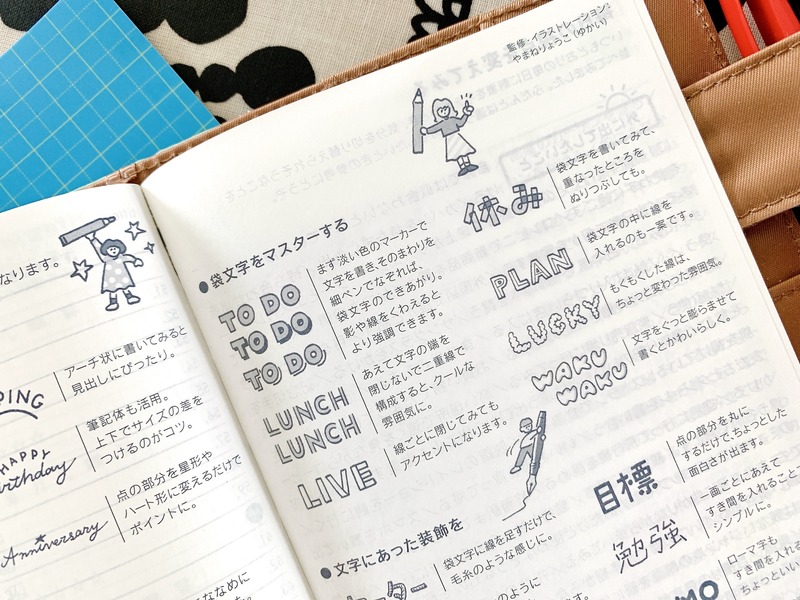 なります。
PING
アーチ状に書いてみると
見出しにぴったり。
HAPPY
irthday
筆記体も活用。
上下でサイズの差を
つけるのがコツ。
Anniversary
点の部分を星形や
ハート形に変えるだけで
ポイントに。
ななめに
監修・イラストレーション:
やまねりょうこ(ゆかい)
●袋文字をマスターする
TO DO
TO DO
TO DO
まず淡い色のマーカーで
文字を書き、そのまわりを
細ペンでなぞれば、
袋文字のできあがり。
影や線をくわえると
より強調できます。
LUNCH
LUNCH
あえて文字の端を
閉じないで二重線で
構成すると、クールな
雰囲気に。
LIVE
線ごとに閉じてみても
アクセントになります。
休み
袋文字を書いてみて、
重なったところを
ぬりつぶしても。
PLAN
袋文字の中に線を
入れるのも一案です。
LUCKY
もくもくした線は、
ちょっと変わった雰囲気。
WAKU
WAKU
文字をぐっと膨らませて
書くとかわいらしく。
●文字にあった装飾を
ーター
袋文字に線を足すだけで、
毛糸のような感じに。
のように
目標
点の部分を丸に
するだけで、ちょっとした
面白さが出ます。
勉強
一画ごとにあえて
すき間を入れること
シンプルに。
MO
ローマ字も
すき間を入れる
ちょっといい